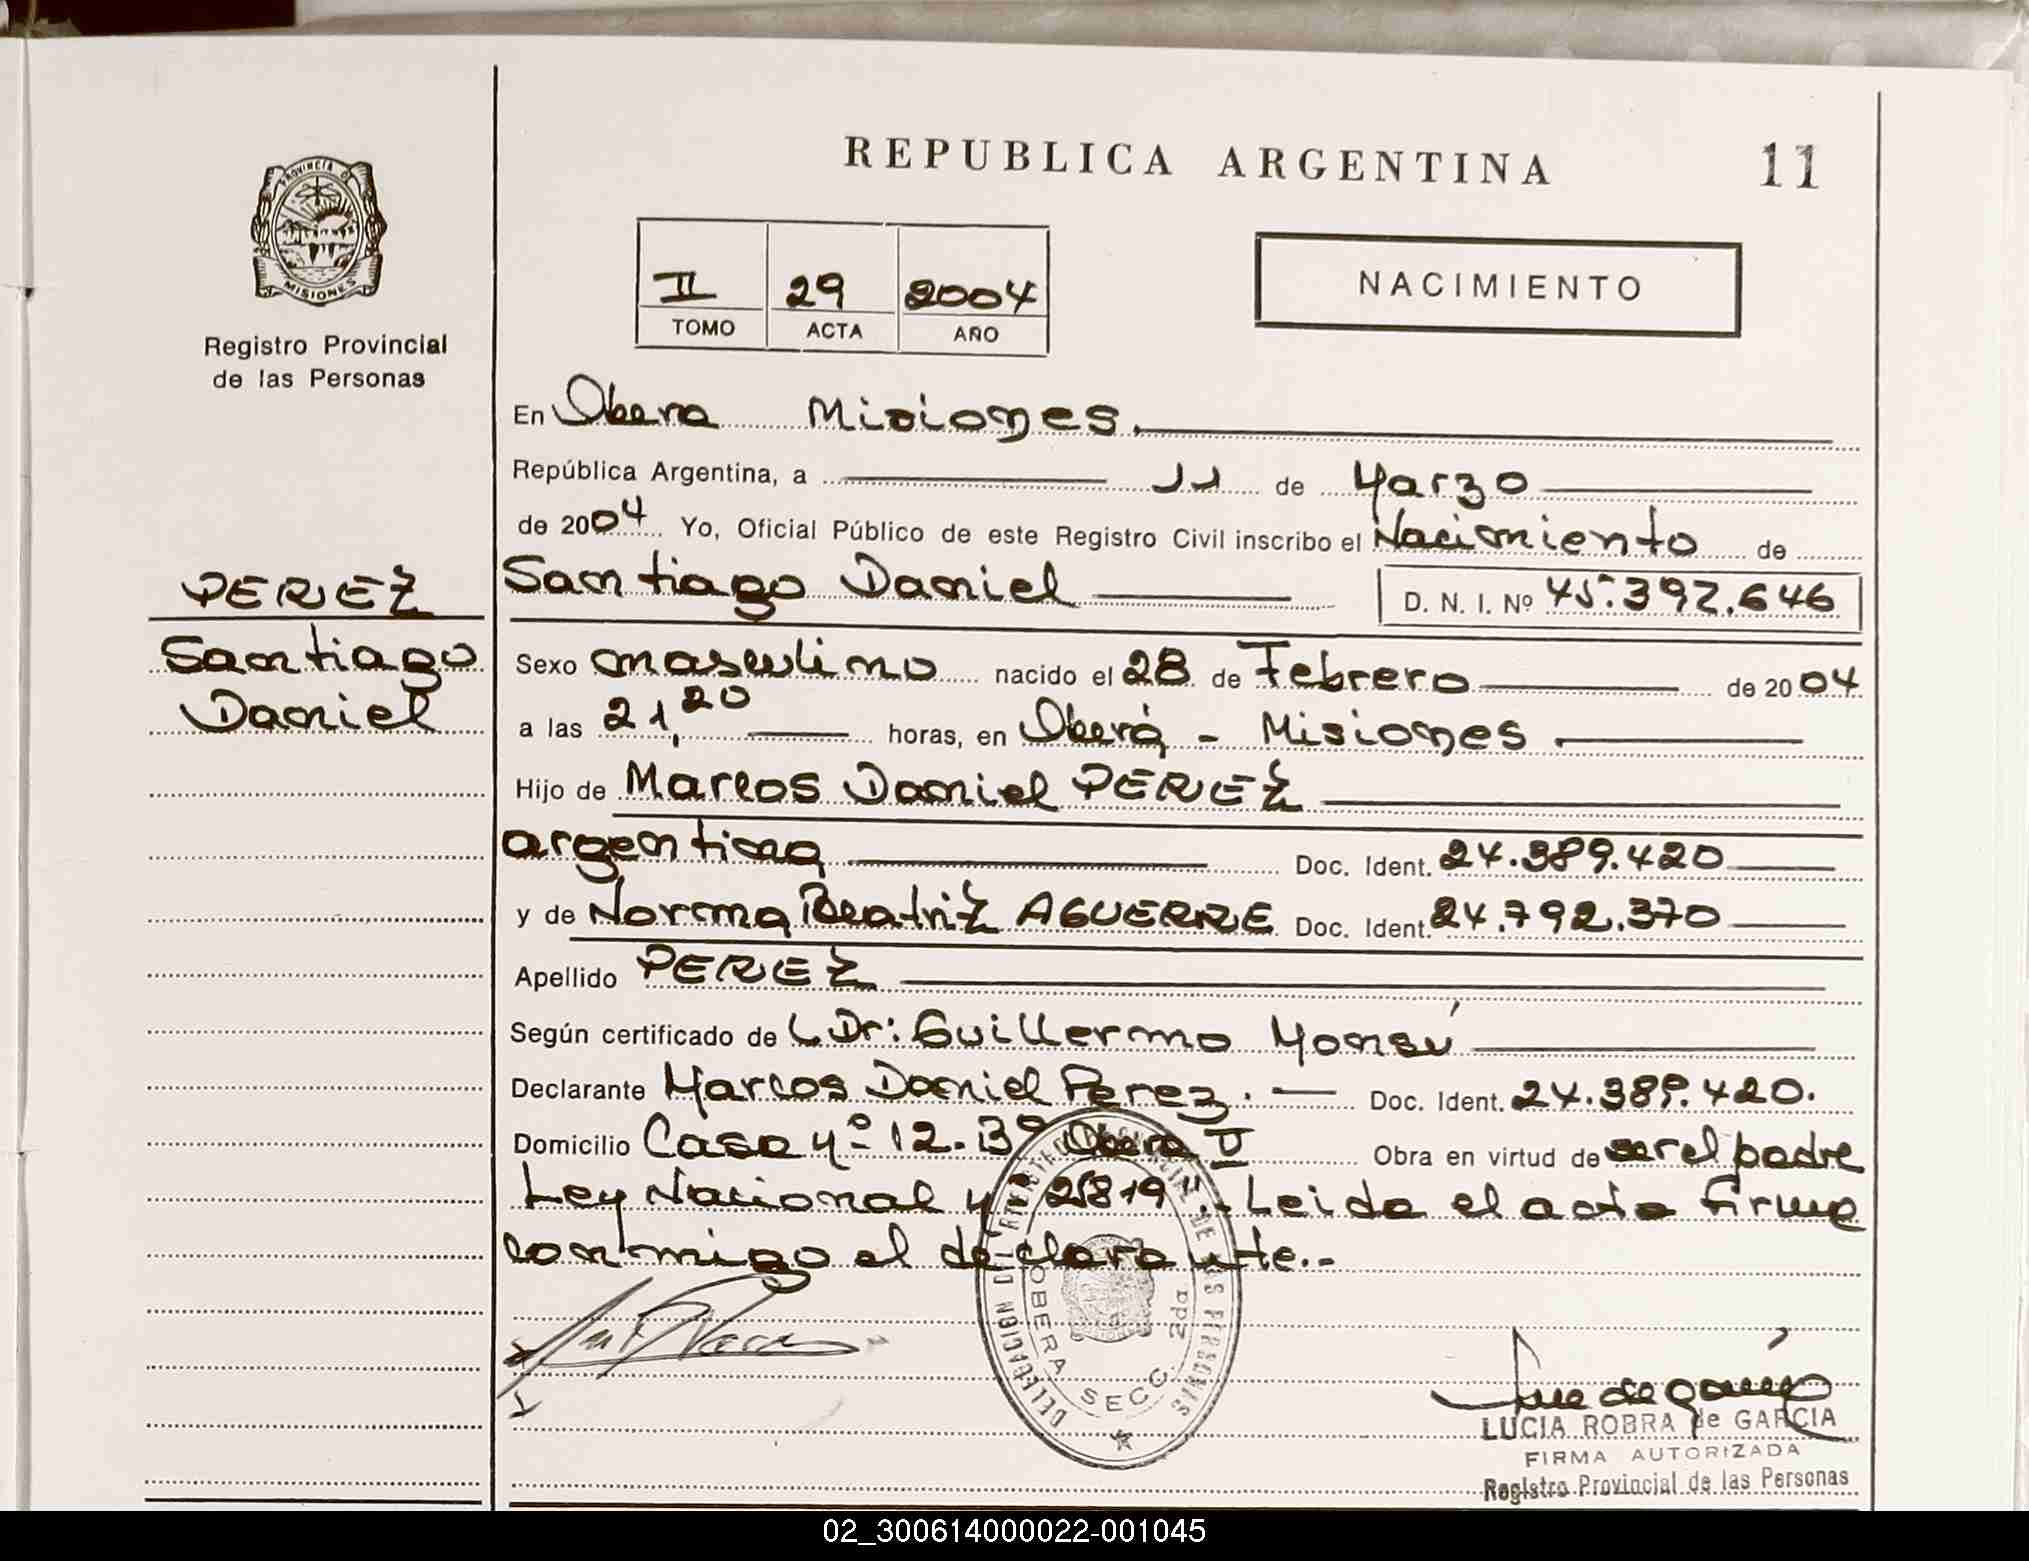 REPUBLICA ARGENTINA
11
PROVINCIA D
MISIONES
Registro Provincial
de las Personas
II 29 2004
TOMO ACTA AÑO
NACIMIENTO
En Obera Misiones.
República Argentina, a 11 de Marzo
de 2004 Yo, Oficial Público de este Registro Civil inscribo el Nacimiento de
PEREZ
Santiago
Daniel
Santiago Daniel D. N. I. Nº 45.392.646
Sexo masculino nacido el 28 de Febrero de 2004
a las 21,20 horas, en Oberá - Misiones.
Hijo de Marcos Daniel PEREZ
argentina Doc. Ident. 24.389.420
y de Norma Beatriz AGUERRE Doc. Ident. 24.792.370
Apellido PEREZ
Según certificado de Dr: Guillermo Monsú
Declarante Marcos Daniel Perez. Doc. Ident. 24.389.420.
Domicilio Casa Nº 12. Bº Obera II Obra en virtud de ser el padre
Ley Nacional Nº 25819". Leida el acta firma
conmigo el declarante.-
OBERA SECC. 2da
LUCIA ROBRA de GARCIA
FIRMA AUTORIZADA
Registro Provincial de las Personas
02_300614000022-001045